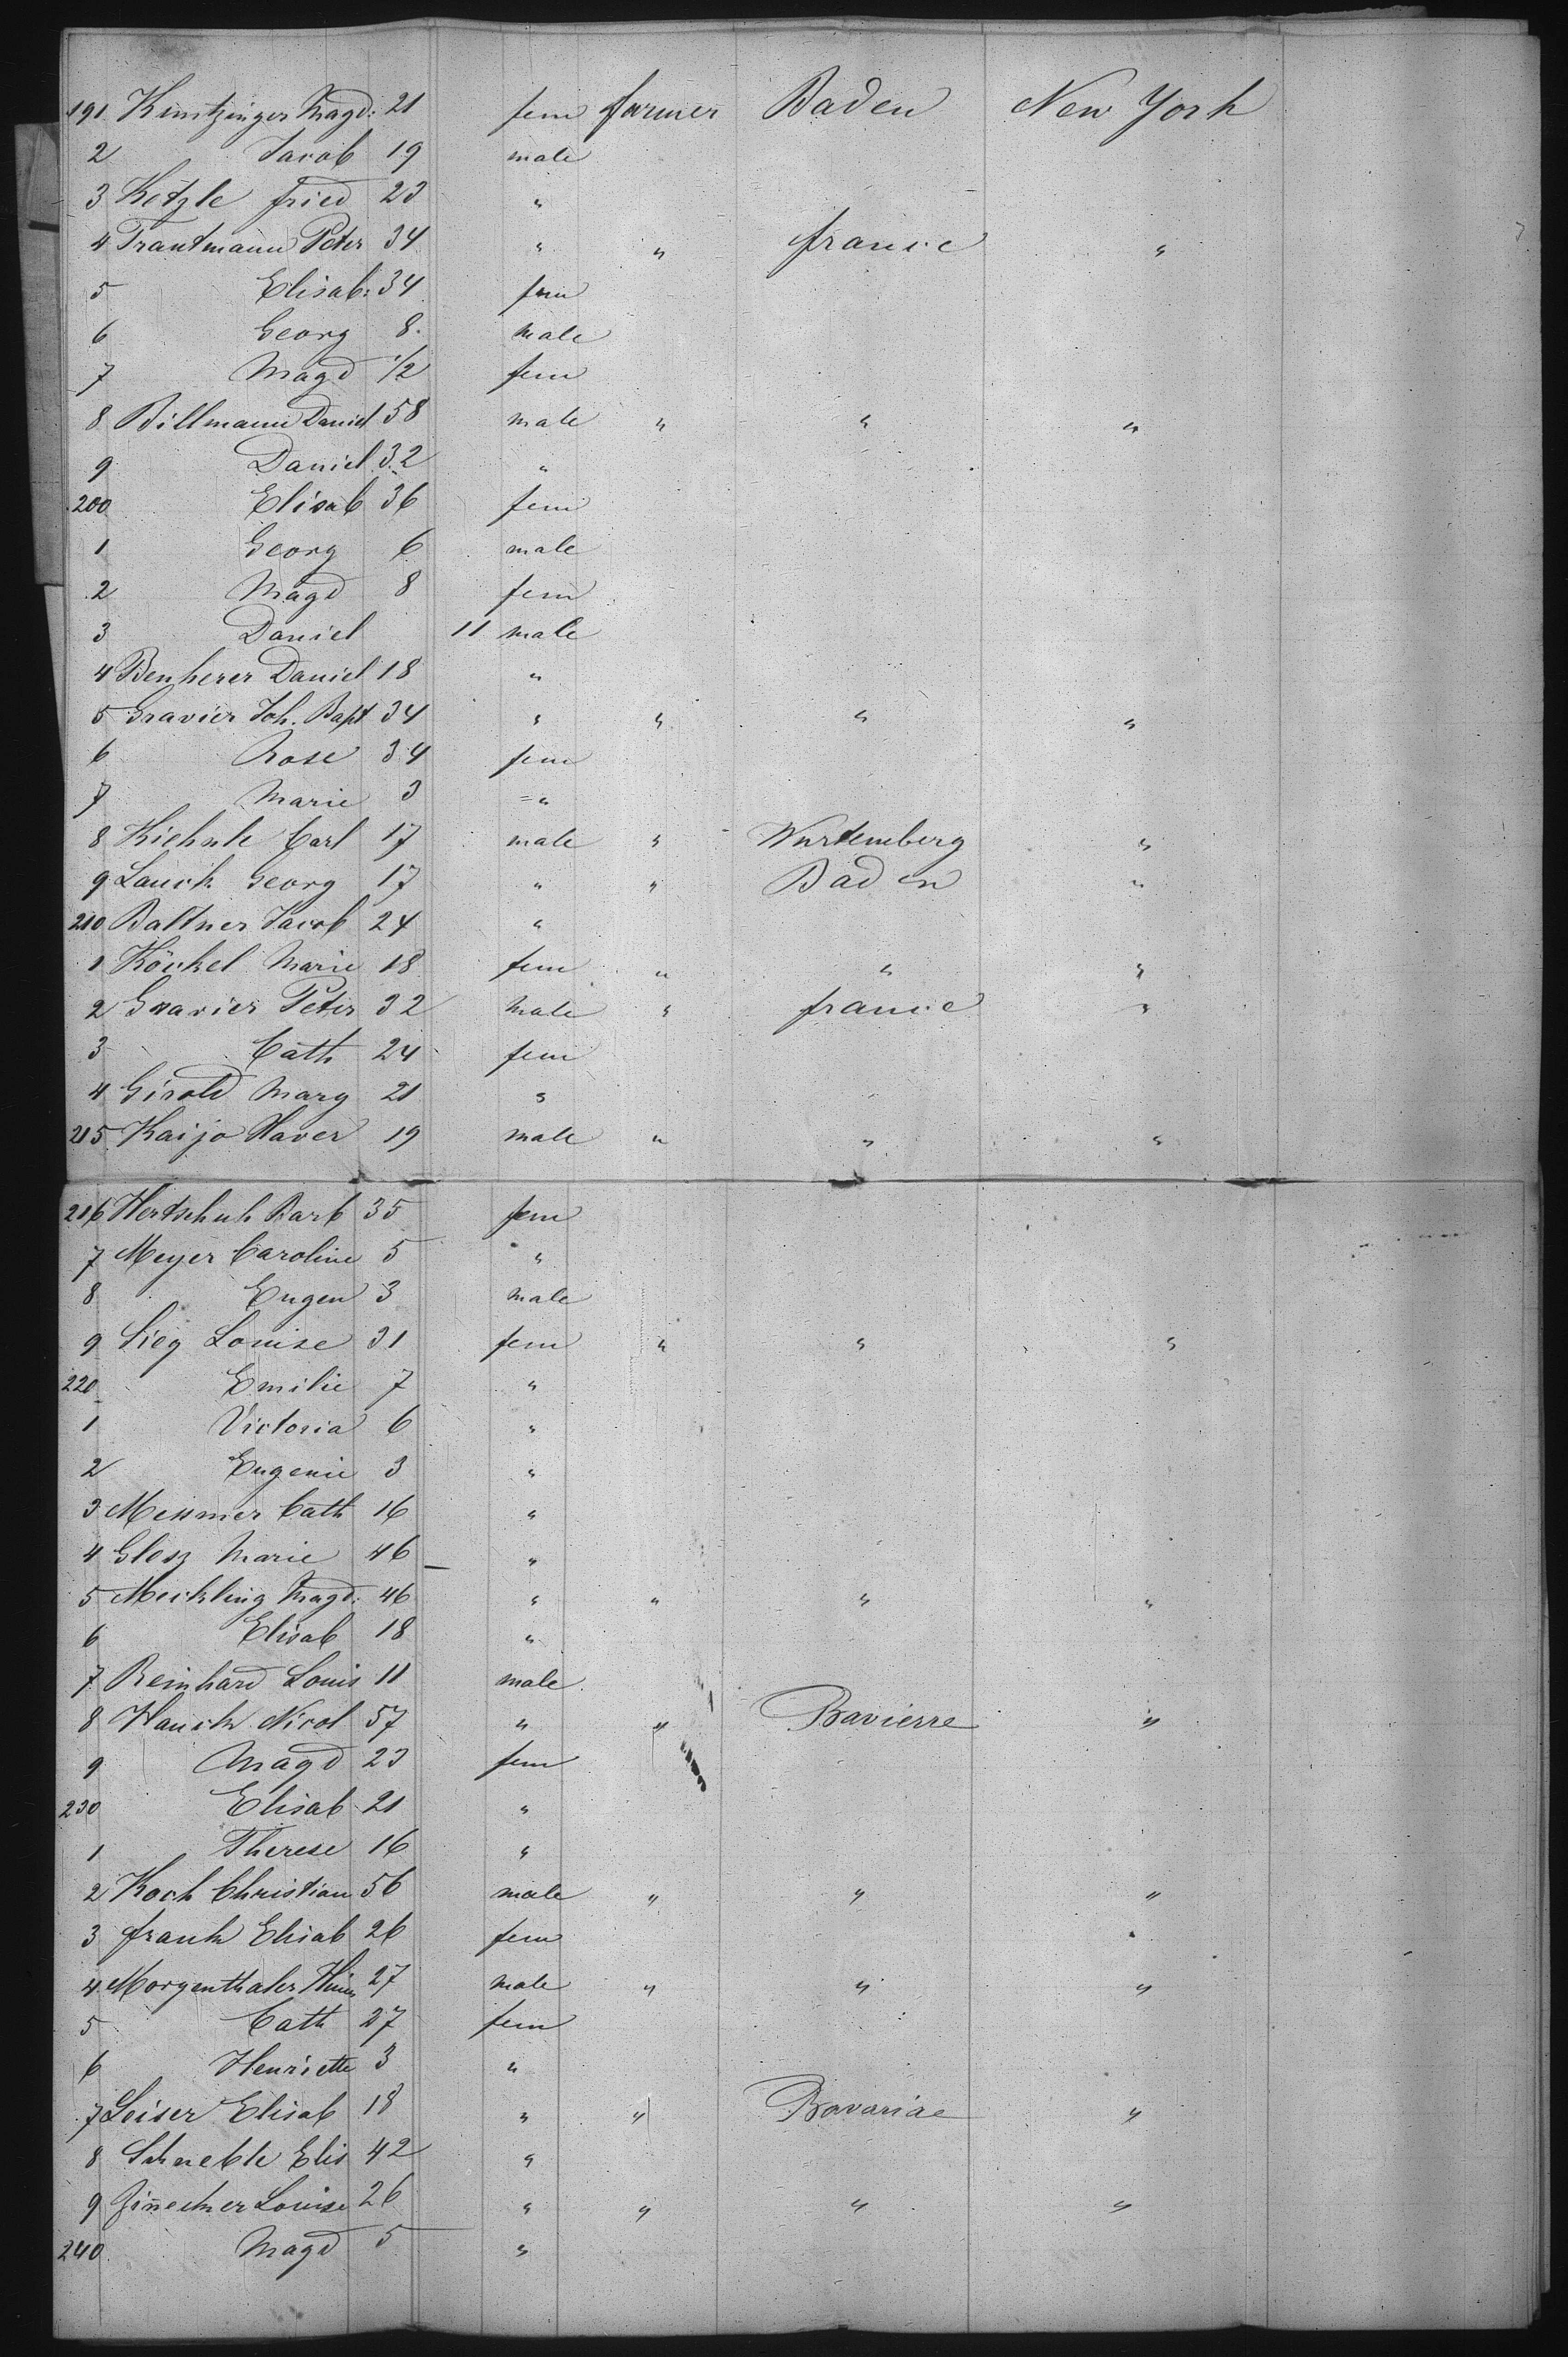 191 Kuntzinger Magd: 21 fem farmer Baden New York
2 Jacob 19 male
3 Ketzle fried 23 "
4 Trautmann Peter 34 " " france "
5 Elisab: 34 fem
6 Georg 8. male
7 Magd 1/2 fem
8 Billmann Daniel 58 male " " "
9 Daniel 32 "
200 Elisab 36 fem
1 Georg 6 male
2 Magd 8 fem
3 Daniel 11 male
4 Benherer Daniel 18 "
5 Gravier Joh. Bapt 34 " " " "
6 Rose 34 fem
7 Marie 3 = "
8 Kiehnle Carl 17 male " Wurtemberg "
9 Lauck Georg 17 " " Baden "
210 Baltner Jacob 24 "
1 Köckel Marie 18 fem " " "
2 Gravier Peter 32 male " france "
3 Cath 24 fem
4 Girold Marg 21 "
215 Kaijo Xaver 19 male " " "
216 Hertschuh Barb 35 fem
7 Meyer Caroline 5 "
8 Eugen 3 male
9 Sieg Louise 31 fem " " "
220 Emilie 7 "
1 Victoria 6 "
2 Eugenie 3 "
3 Messmer Cath 16 "
4 Glosz Marie 46 "
5 Meckling Magd: 46 " " " "
6 Elisab 18 "
7 Reinhard Louis 11 male
8 Hauck Nicol 57 " " Bavierre "
9 Magd 23 fem
230 Elisab 21 "
1 Therese 16 "
2 Koch Christian 56 male " " "
3 frank Elisab 26 fem
4 Morgenthaler 27 male " " "
5 Cath 27 fem
6 Henriette 3 "
7 Leiser Elisab 18 " " Bavariae "
8 Schneble Elis 42 "
9 Louise 26 " " " "
240 Magd 5 "